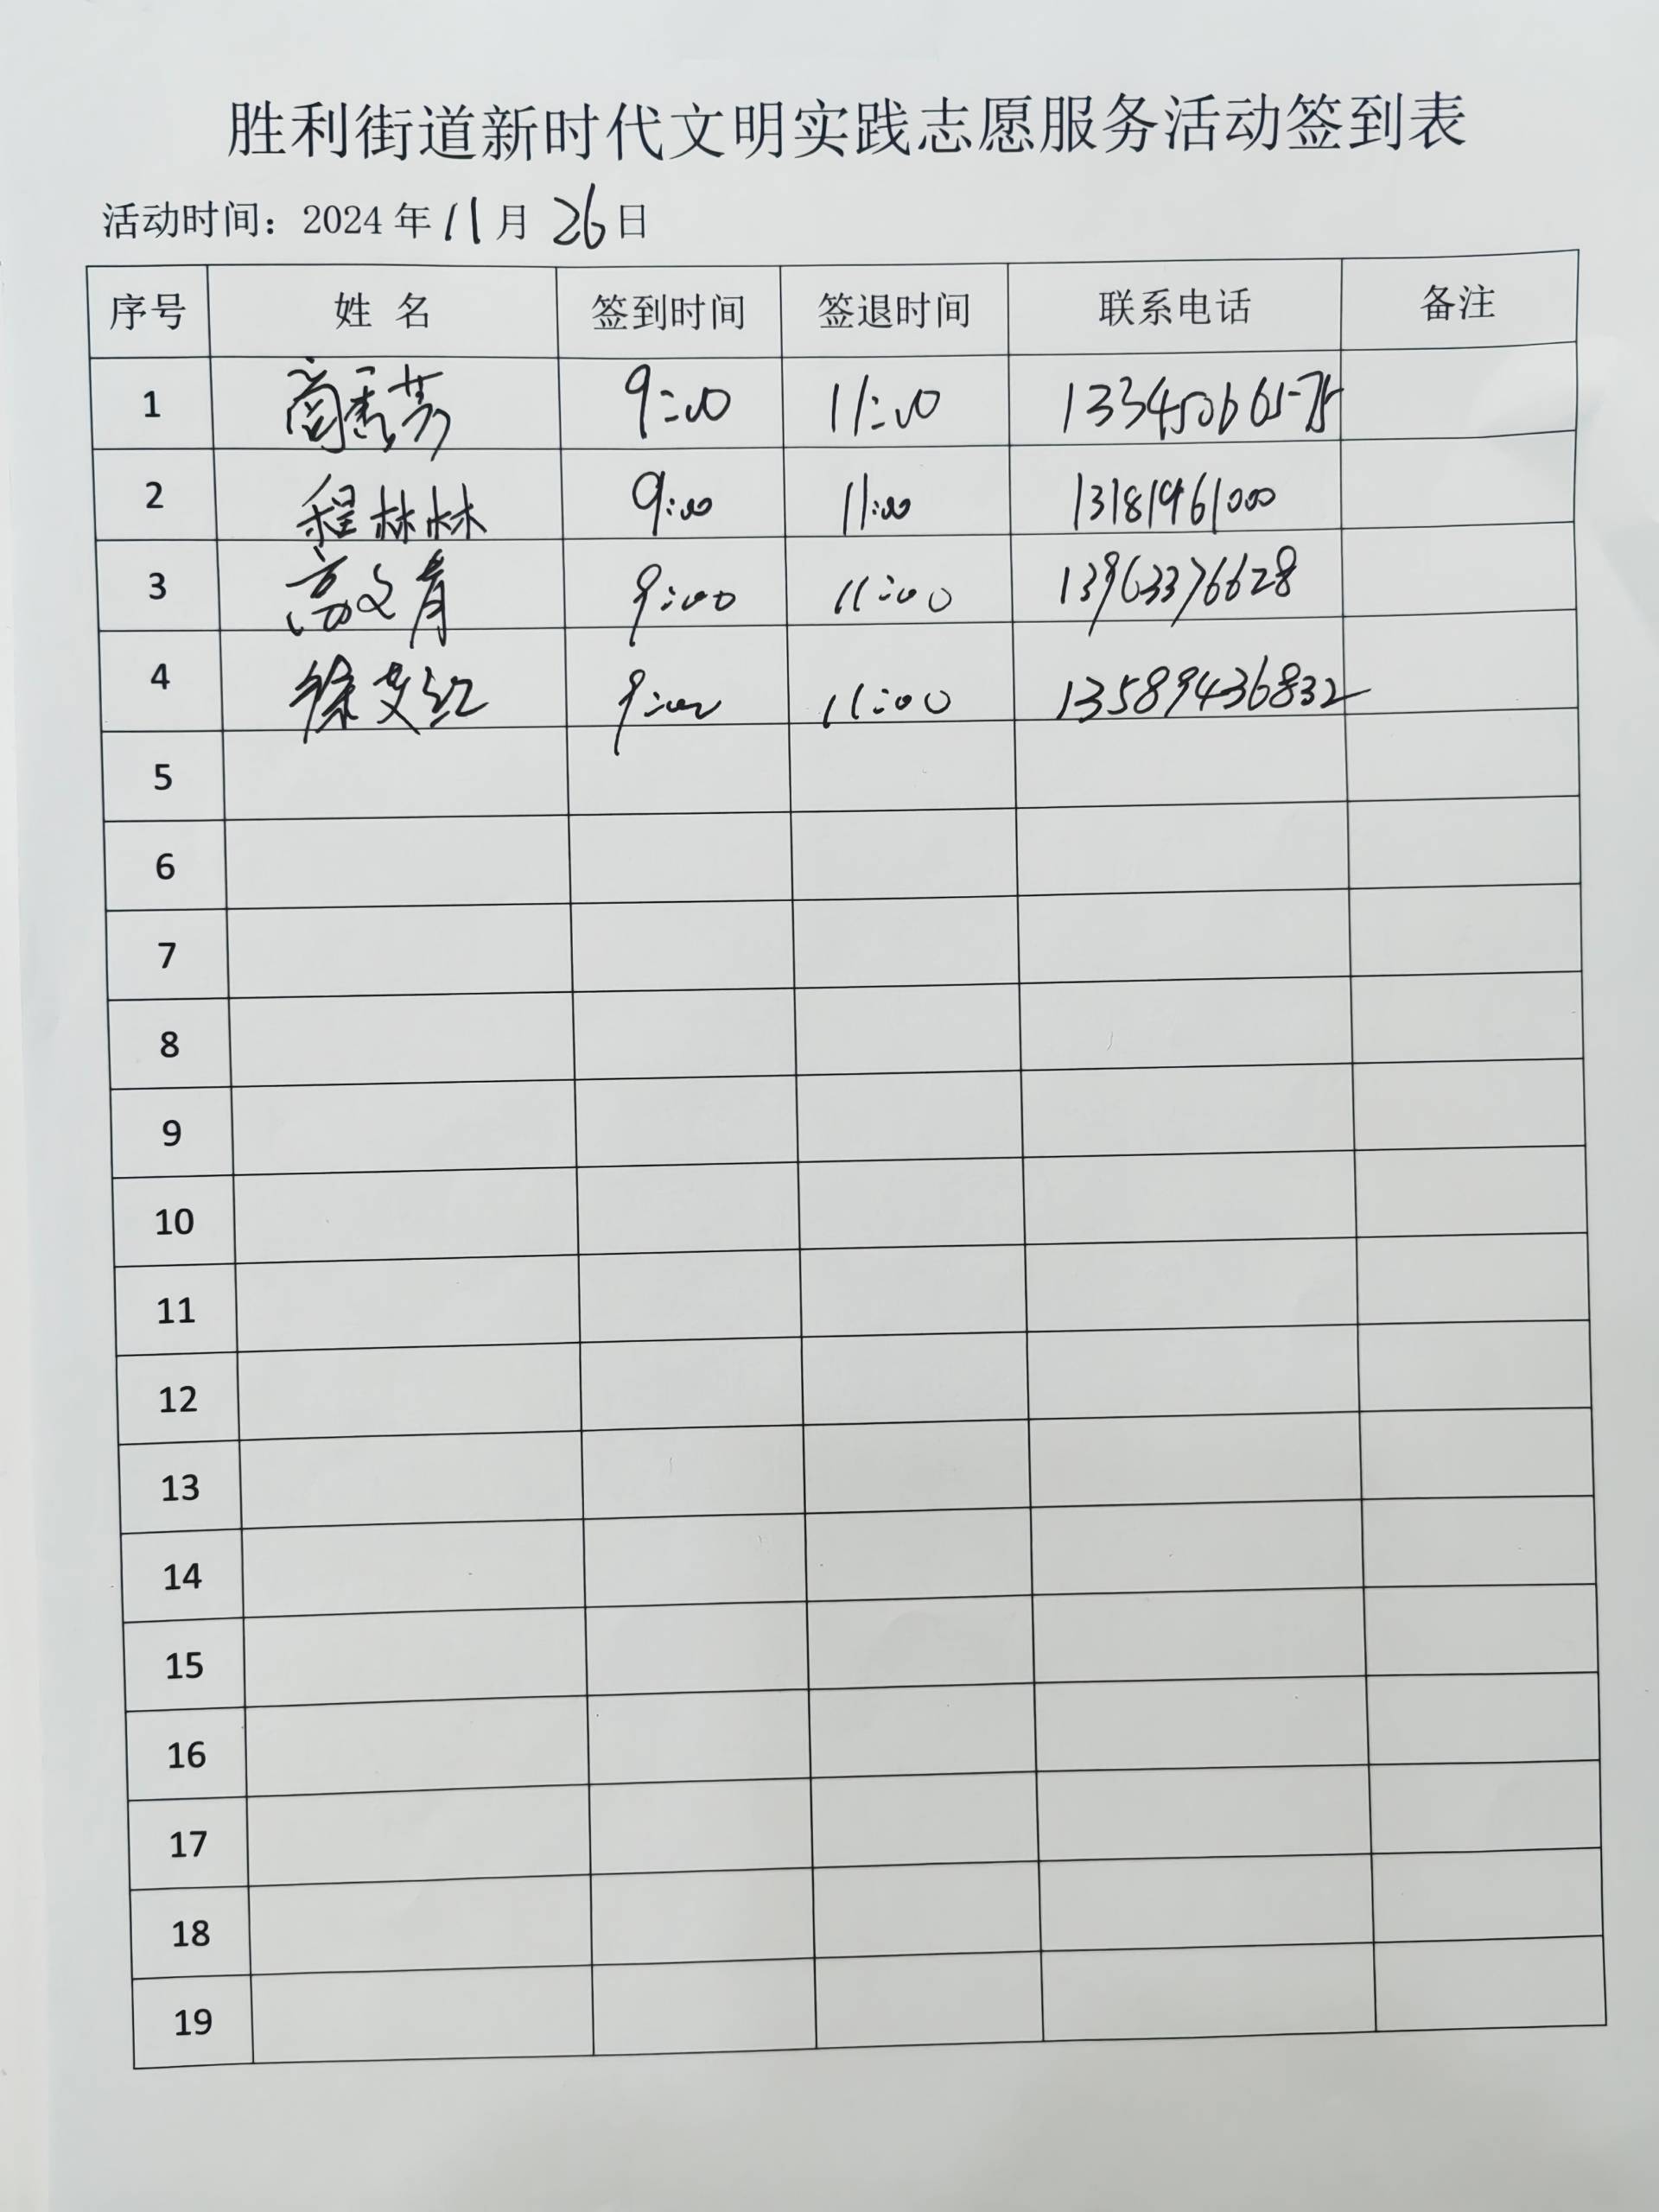 胜利街道新时代文明实践志愿服务活动签到表
活动时间：2024年11月26日
序号 姓名 签到时间 签退时间 联系电话 备注
1 9:00 11:00
2 程林林 9:00 11:00 13181961000
3 高文青 9:00 11:00 13963376628
4 徐艾红 9:00 11:00 13589436832
5
6
7
8
9
10
11
12
13
14
15
16
17
18
19